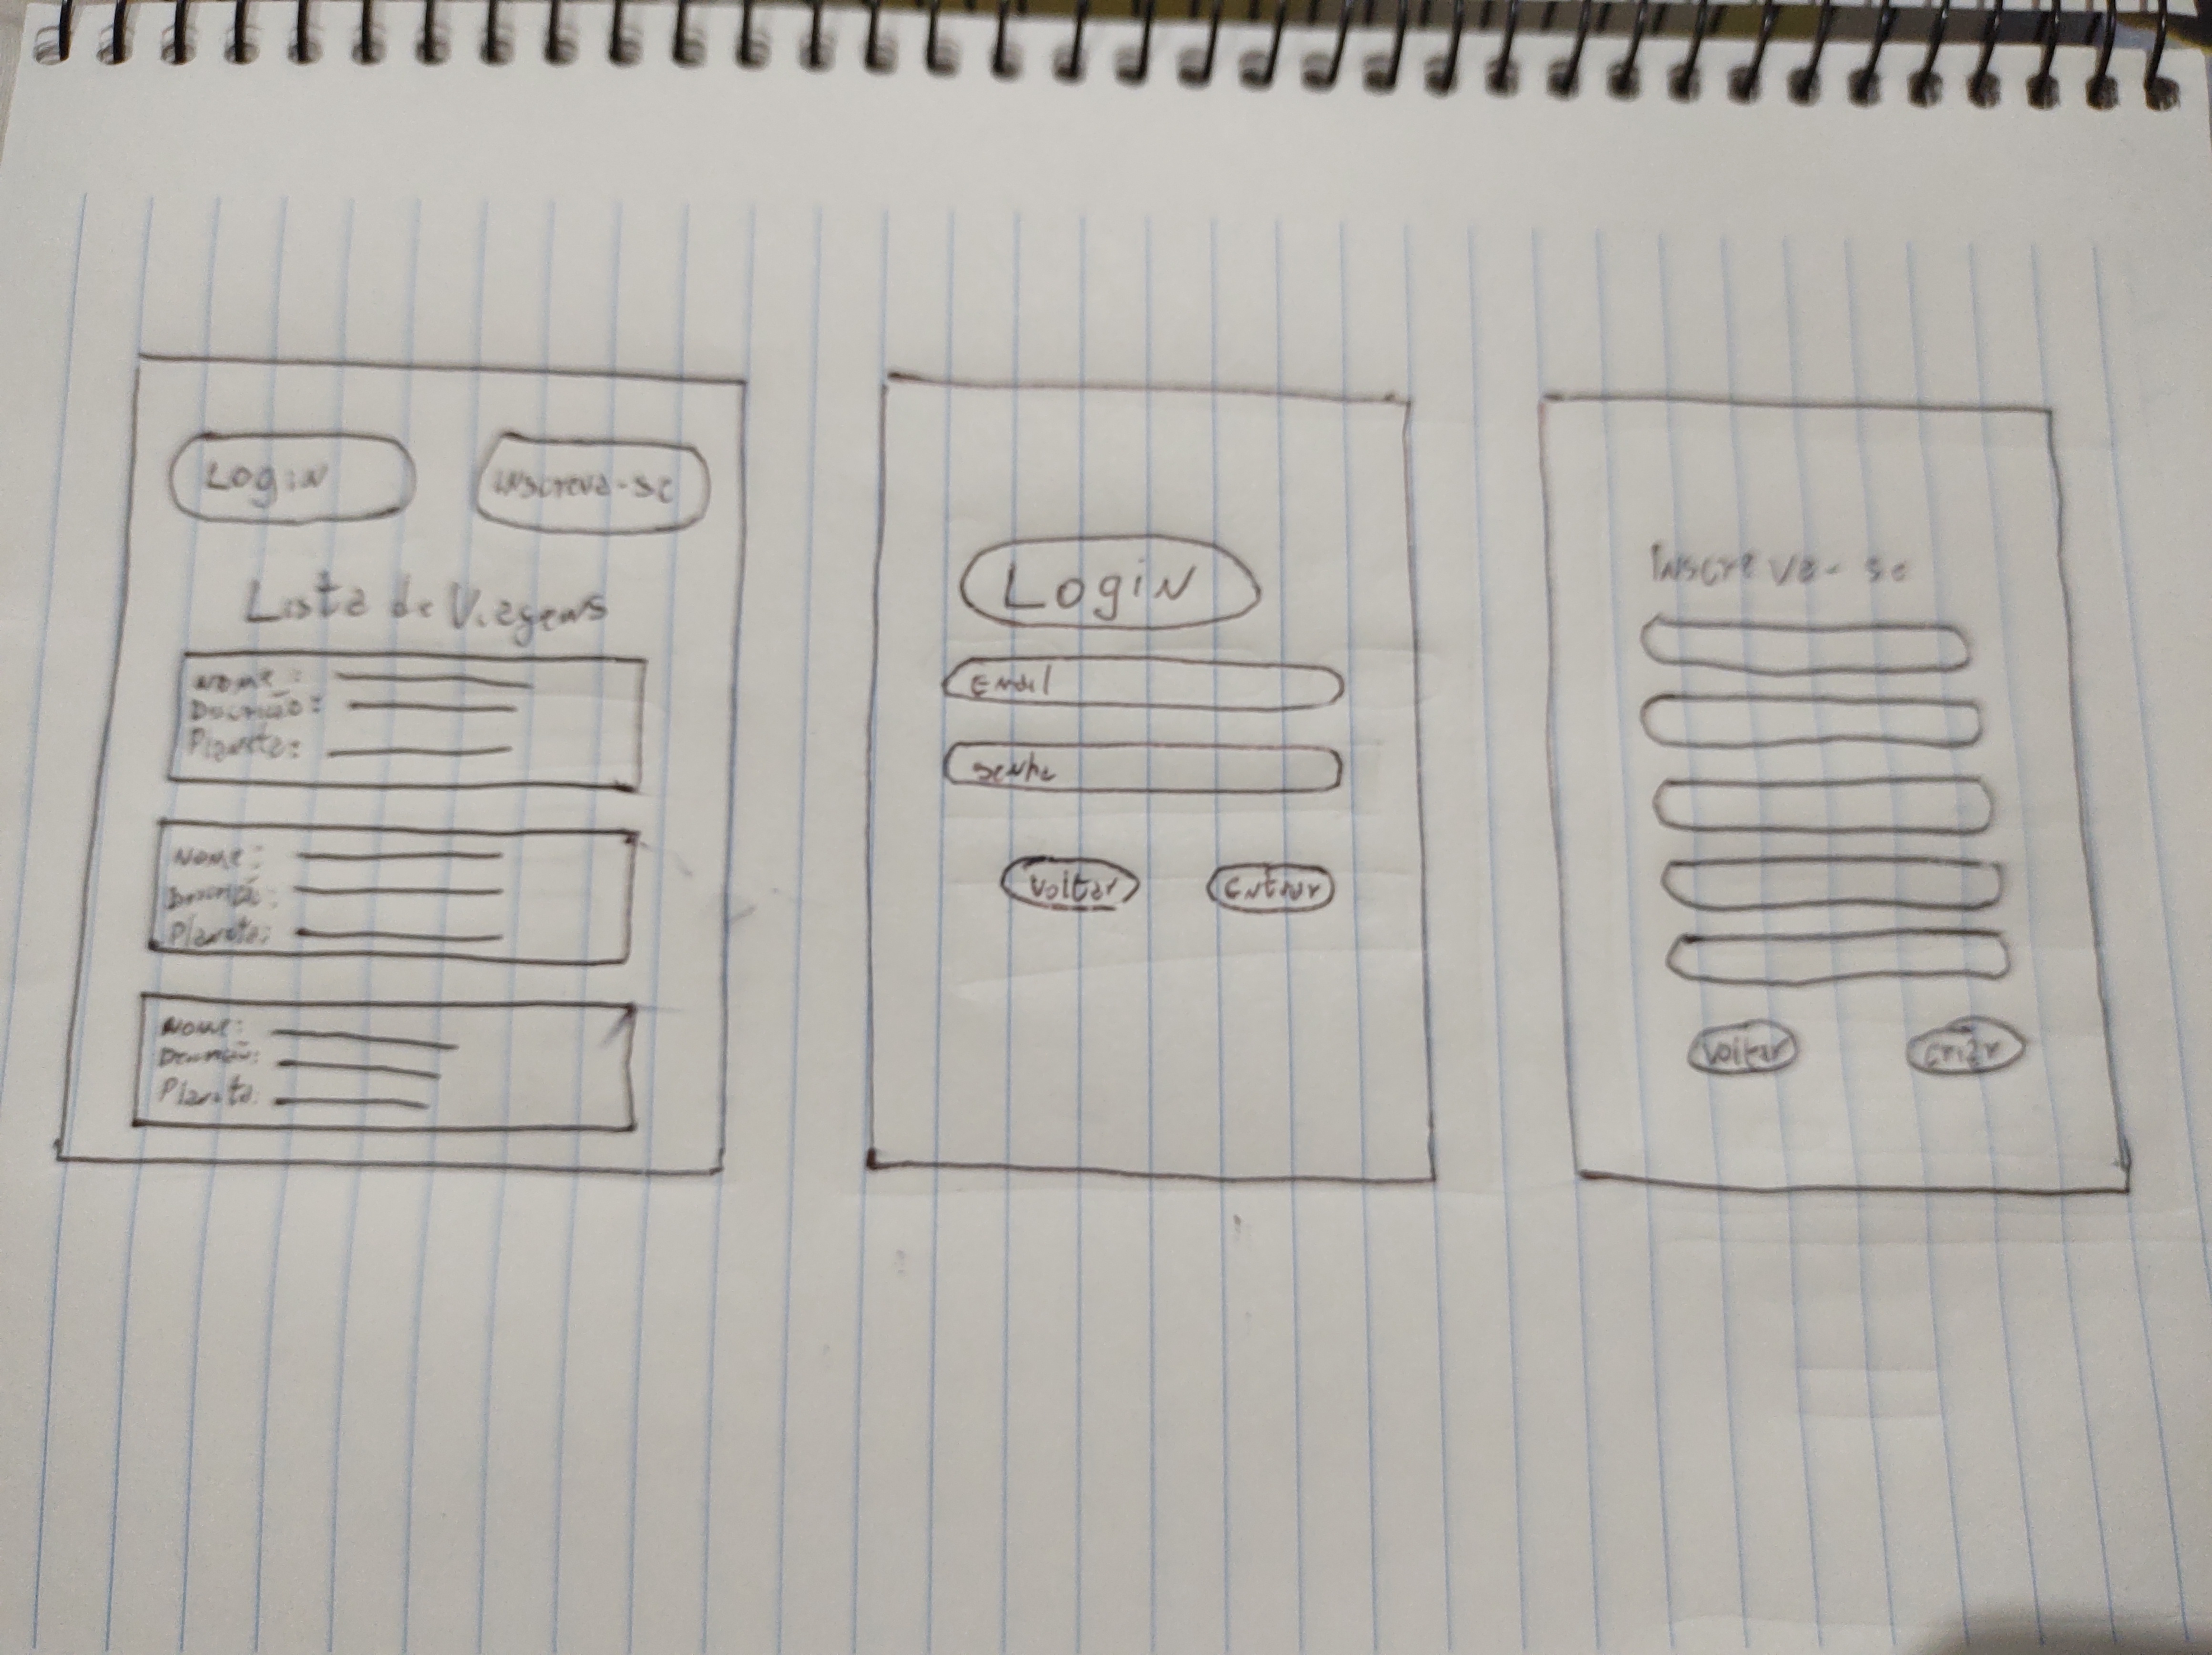 Login
Inscreva-se
Lista de Viagens
Nome:
Descrição:
Planeta:
Nome:
Descrição:
Planeta:
Nome:
Descrição:
Planeta:
Login
Email
Senha
Voltar
Entrar
Inscreva-se
Voltar
Criar